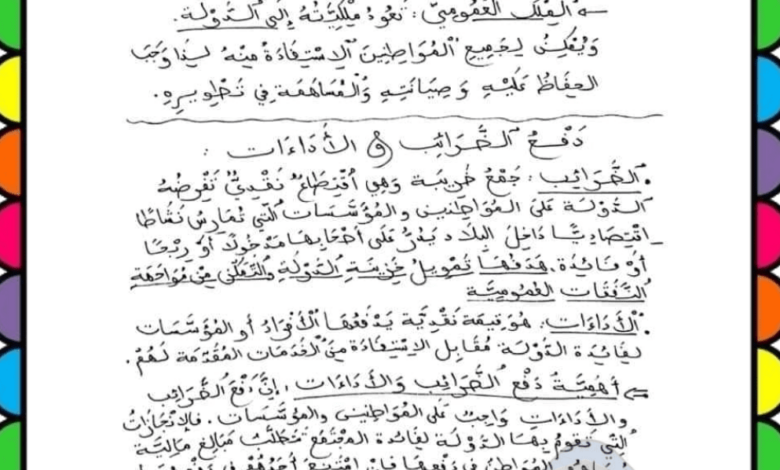 ⇐ المِلْكُ العُمُومِيُّ : تَعُودُ مِلْكِيَّتُهُ إِلَى الدَّوْلَةِ.
وَيُمْكِنُ لِجَمِيعِ المُوَاطِنِينَ الاِسْتِفَادَةُ مِنْهُ لِذَا وَجَبَ
الحِفَاظُ عَلَيْهِ وَصِيَانَتِهِ وَالمُسَاهَمَةِ فِي تَطْوِيرِهِ.
دَفْعُ الضَّرَائِبِ وَ الأَدَاءَات :
• الضَّرَائِب : جَمْعُ ضَرِيبَة وَهِيَ اقْتِطَاعٌ نَقْدِيٌّ تَفْرِضُهُ
الدَّوْلَةُ عَلَى المُوَاطِنِينَ وَالمُؤَسَّسَاتِ الَّتِي تُمَارِسُ نَشَاطًا
اقْتِصَادِيًّا دَاخِلَ البِلَاد يَدُرُّ عَلَى أَصْحَابِهَا مَدْخُولًا أَوْ رِبْحًا
أَوْ فَائِدَة. هَدَفُهَا تَمْوِيلُ خَزِينَةِ الدَّوْلَةِ وَالتَّمَكُّنُ مِنْ مُوَاجَهَةِ
النَّفَقَاتِ العُمُومِيَّة
• الأَدَاءَات : هُوَ قِيمَة نَقْدِيَّة يَدْفَعُهَا الأَفْرَادُ أَو المُؤَسَّسَات
لِفَائِدَة الدَّوْلَة مُقَابِل الاِسْتِفَادَة مِنَ الخَدَمَاتِ المُقَدَّمَة لَهُمْ.
⇐ أَهَمِّيَّةُ دَفْعِ الضَّرَائِبِ وَالأَدَاءَات : إِنَّ دَفْعَ الضَّرَائِبِ
وَالأَدَاءَاتِ وَاجِبٌ عَلَى المُوَاطِنِينَ وَالمُؤَسَّسَات. فَالإِنْجَازَاتُ
الَّتِي تَقُومُ بِهَا الدَّوْلَة لِفَائِدَة المُجْتَمَع تَتَطَلَّبُ مَبَالِغَ مَالِيَّة
المُوَاطِنُ فِي دَفْعِهَا فَإِنْ امْتَنَعَ أَحَدُهُمْ فِي دَفْعِ